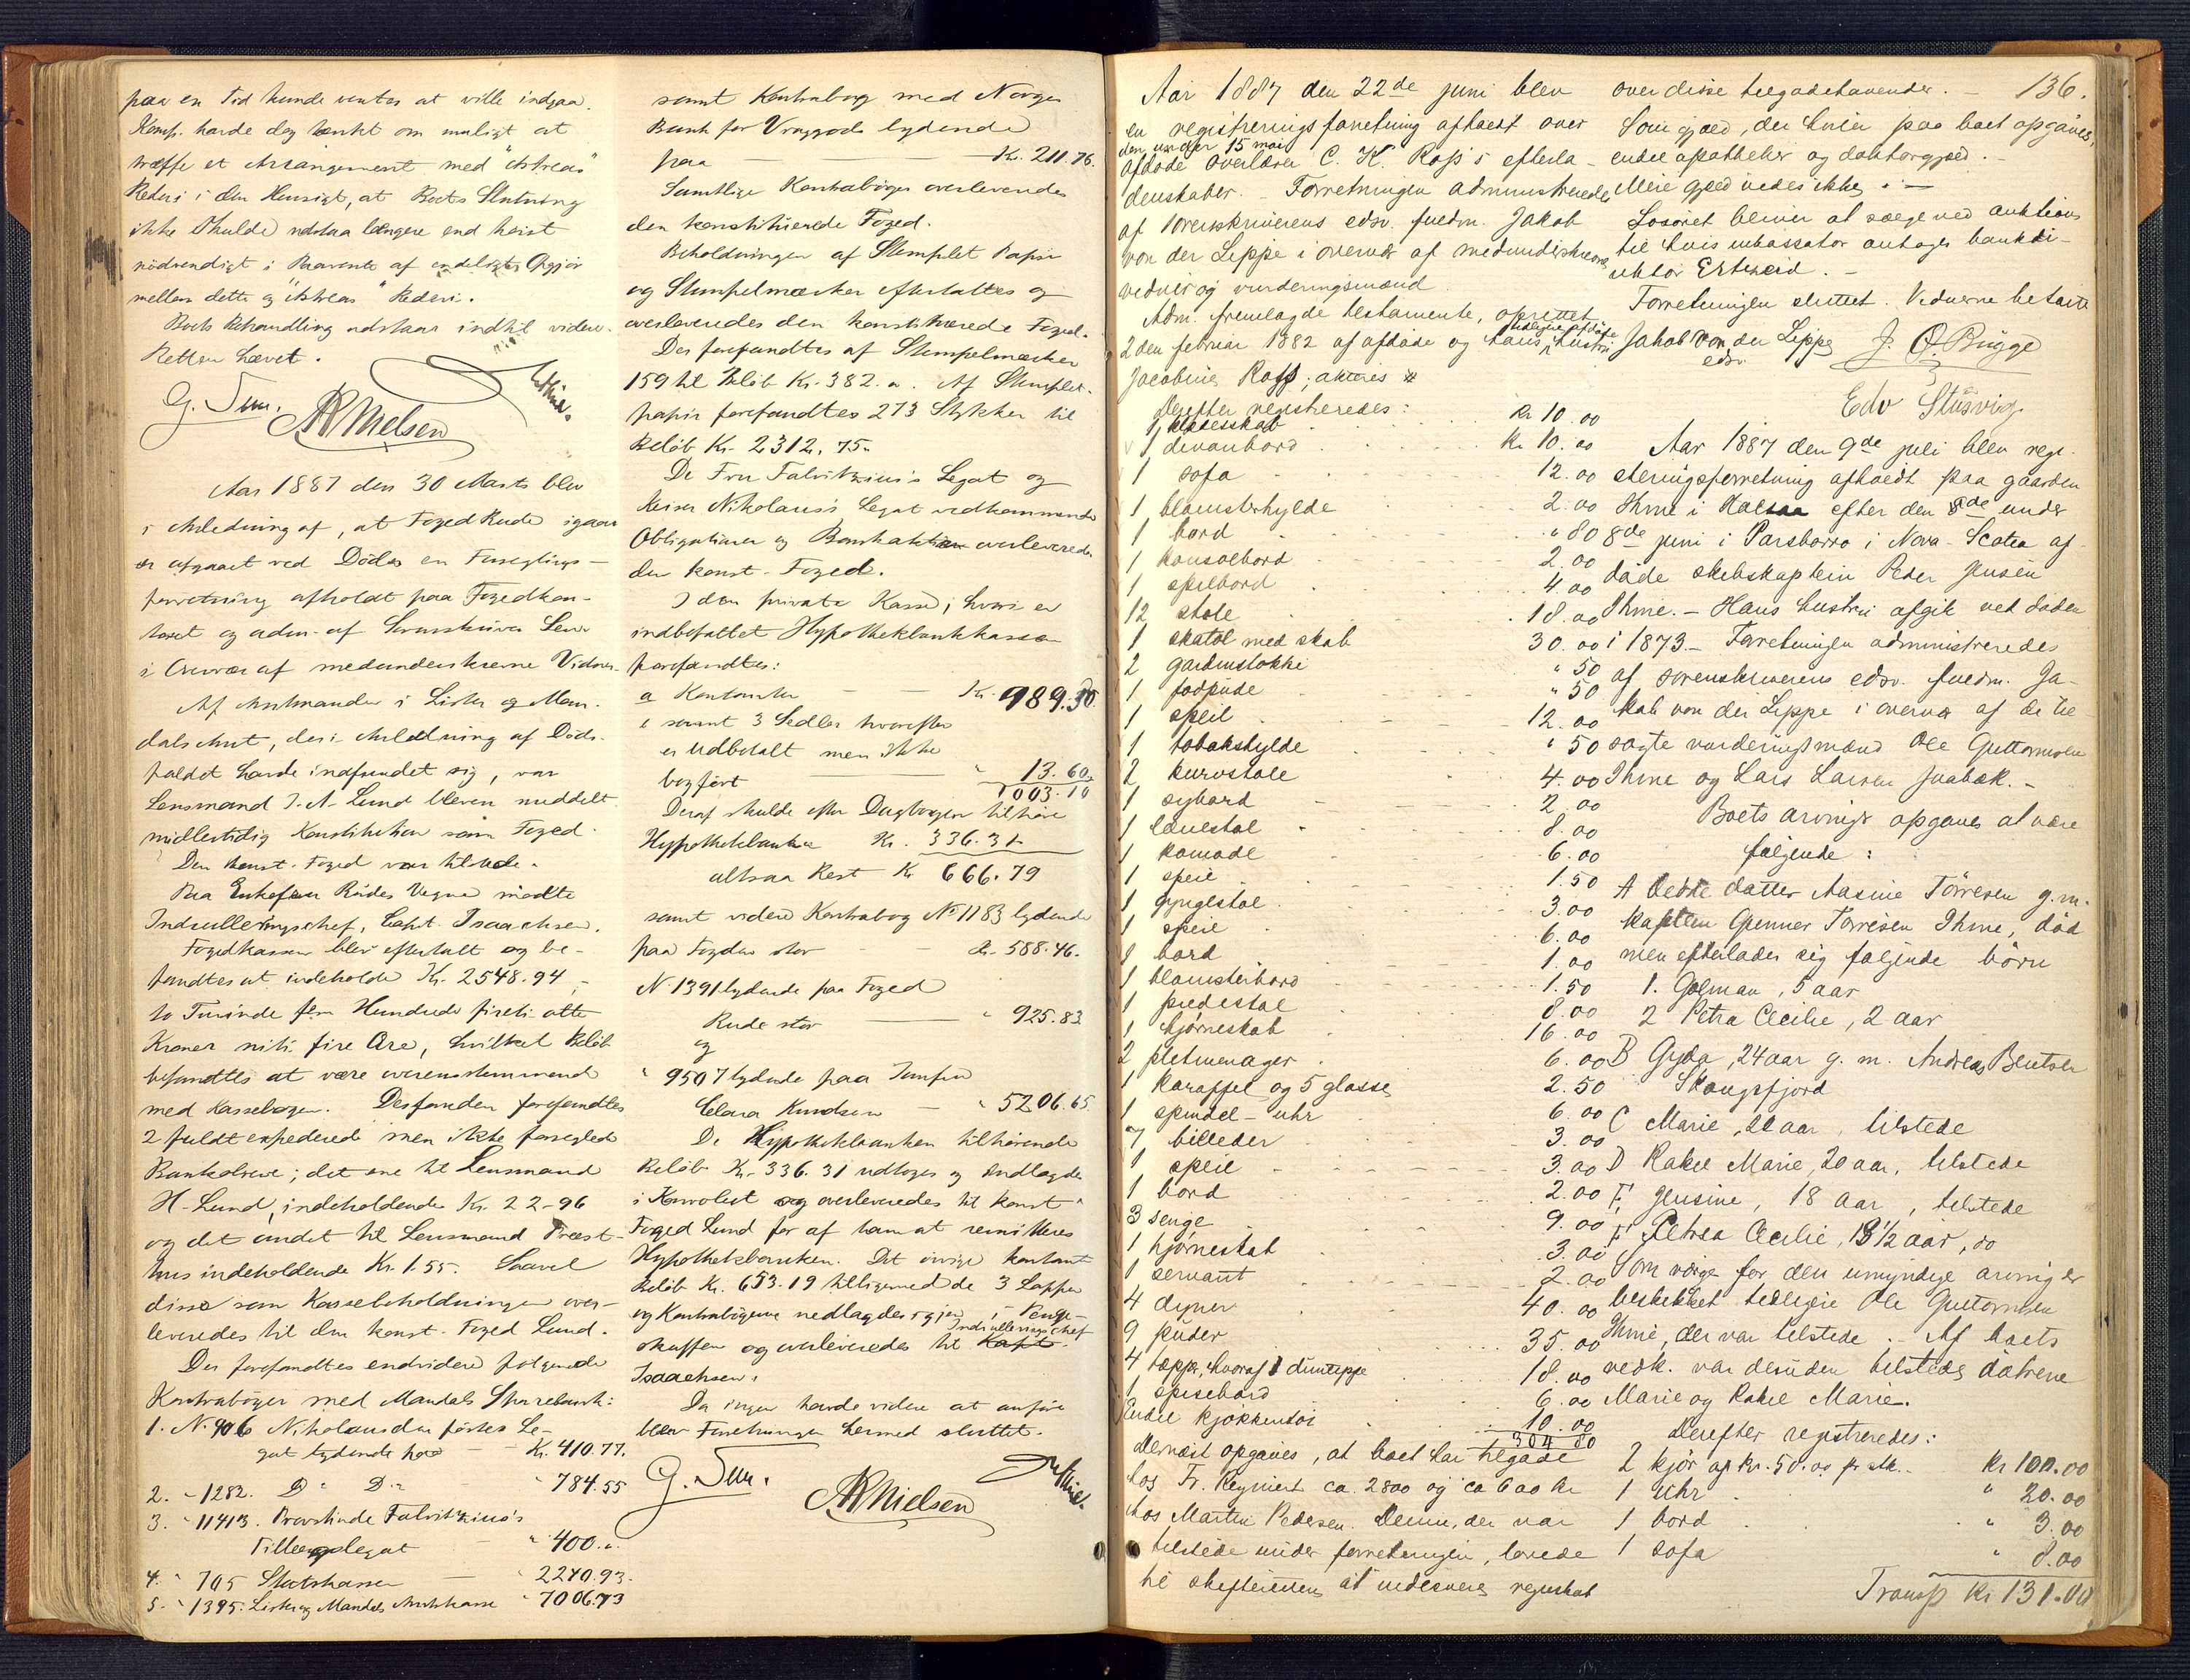 paa en Tid kunde ventes at ville indgaa.
Komp. havde dog tænkt om muligt at
træffe et Arrangement med "Astreas"
Rederi i den Hensigt, at Boets Slutning
ikke skulde udstaa længere end høist
nødvendigt i Paavente af endeligt Opgjør
mellem dette og "Astreas" Rederi.
Boets Behandling udstaar indtil videre.
Retten hævet.
ARNielsen
Aar 1887 den 30 Marts blev
i Anledning af, at Foged Rude igaar
er afgaaet ved Døden en Forseglings-
forretning afholdt paa Fogedkon-
toret og adm. af Sorenskriver
i Overvær af medunderskrevne Vidner.
Af Amtmanden i Lister og Man-
dals Amt, der i Anledning af Døds-
faldet havde indfundet sig, var
Lensmand J. A. Lund bleven meddelt
midlertidig Konstitution som Foged.
Den konst. Foged var tilstede.
Paa Enkefru Rudes Vegne mødte
Indrulleringschef, Capt. Isaachsen.
Fogedkassen blev eftertalt og be-
fandtes at indeholde Kr. 2548.94,-
to Tusinde fem Hundrede firti otte
Kroner nitti fire Øre, hvilket Beløb
befandtes at være overensstemmende
med Kassebogen. Desforuden forefandtes
2 fuldt expederede men ikke forseglede
Bankobreve; det ene til Lensmand
H. Lund, indeholdende Kr. 22-96
og det andet til Lensmand Præst-
hus indeholdende Kr. 1.55. Saavel
disse som Kassebeholdningen over-
leveredes til den konst. Foged Lund.
Der forefandtes endvidere følgende
Kontrabøger med Mandals Sparebank:
1. No 906 Nikolaus den førstes Le-
gat lydende paa - - Kr. 410.77.
2. - 1282. D- D- " 784.55
3. " 11413. Provstinde Fabritzius's
Tillægslegat " 400."
4. " 705 Statskassen - " 2270.93.
5. " 1395. Lister og Mandals Amtskasse " 7006.73
samt Kontrabog med Norges
Bank for Vraggods lydende
paa - Kr. 211.76.
Samtlige Kontrabøger overleveredes
den konstituerede Foged.
Beholdningen af Stemplet Papir
og Stempelmærker eftertaltes og
overleveredes den konstituerede Foged.
Der forefandtes af Stempelmærker
159 til Beløb Kr. 382. ". Af Stemplet-
papir forefandtes 273 Stykker til
Beløb Kr. 2312. 75.
De Fru Fabritzius's Legat og
Keiser Nikolaus's Legat vedkommende
Obligationer og Bankaktier overleveredes
den konst. Foged.
I den private Kasse, hvori er
indbefattet Hypothekbankkassen
forefandtes:
a Kontanter - - Kr. 989.50
samt 3 Sedler hvorefter
er udbetalt men ikke
bogført - " 13.60
1003.10
Deraf skulde efter Dagbogen tilhøre
Hypothekbanken Kr. 336.31
altsaa Rest Kr. 666.79
samt videre Kontrabog No 1183 lydende
paa Fogden stor - - Kr. 588.46.
No 1391 lydende paa Foged
Rude stor - " 925.83
og
" 9507 lydende paa Jomfru
Clara Knudsen - " 5206.65
De Hypothekbanken tilhørende
Beløb Kr. 336.31 udtoges og indlagdes
i Konvolut og overleveredes til konst.
Foged Lund for af ham at remitteres
Hypothekbanken. Det øvrige kontant
Beløb Kr. 653.19 tilligemed de 3 Lapper
og Kontrabøgerne nedlagdes igjen i Penge-
skuffen og overleveredes til Kapt. Indrulleringschef
Isaachsen.
Da ingen havde videre at anføre
blev Forretningen hermed sluttet.
ARNielsen
136.
Aar 1887 den 22de juni blev
en registreringsforretning afholdt over
den under 15 mai
afdøde overlærer C. K. Ross's efterla-
denskaber. - Forretningen administreredes
af sorenskriverens edsv. fuldm. Jakob
von der Lippe i overvær af medunderskrevne
vidner og vurderingsmænd.
Adm. fremlagde testamente, oprettet
2den februar 1882 af afdøde og hans tidligere afdøde hustru
Jacobine Ross; akteres
Derefter registreredes:
1 klædesskab kr 10.00
1 divanbord kr 10.00
1 sofa 12.00
1 blomsterhylde 2.00
1 bord " 80
1 konsolbord 2.00
1 spilbord 4.00
12 stole 18.00
1 skatol med skab 30.00
2 gardinstokke " 50
1 fodpude " 50
1 speil 12.00
1 tobakshylde " 50
2 kurvstole 4.00
1 sybord 2.00
1 lænestol 8.00
1 komode 6.00
1 speil 1.50
1 gyngestol 3.00
1 speil 6.00
1 bord 1.00
1 blomsterbord 1.50
1 piedestal 8.00
1 hjørneskab 16.00
2 pletmenager 6.00
1 karaffel og 5 glasse 2.50
1 spindel-uhr 6.00
7 billeder 3.00
1 speil 3.00
1 bord 2.00
3 senge 9.00
1 hjørneskab 3.00
1 servant 2.00
4 dyner 40.00
9 puder 35.00
4 tæpper, hvoraf 1 duntæppe 18.00
1 spisebord 6.00
Endel kjøkkentøi 10.00
304 80
Dernæst opgaves, at boet har tilgode
hos Fr. Reymert ca. 2800 og ca 600 kr
hos Martin Pedersen. Denne, der var
tilstede under forretningen, lovede
til skifteretten at indlevere regnskab
over disse tilgodehavender. -
Som gjæld, der hviler paa boet opgaves,
endel apotheker og doktorgjæld. -
Mere gjæld vides ikke. -
Løsøret bliver at sælge ved auktion
til hvis inkassator antages bankdi-
rektør Ertzeid. -
Forretningen sluttet. Vidnerne betalte
Jakob von der Lippe J. O. Brygge
edsv.
Edv Stusvig
Aar 1887 den 9de juli blev regi-
streringsforretning afholdt paa gaarden
Ihme i Halsaa efter den 8de under
8de juni i Parsborro i Nova-Scotia af-
døde skibskaptein Peder Jensen
Ihme. - Hans hustru afgik ved døden
i 1873. - Forretningen administreredes
af sorenskriverens edsv. fuldm. Ja-
kob von der Lippe i overvær af de til-
sagte vurderingsmænd Ole Guttormsen
Ihme og Lars Larsen Jaabæk. -
Boets arvinger opgaves at være
følgende:
A Ældste datter Aasine Tørresen g.m.
kaptein Gunner Tørresen Ihme, død
men efterlader sig følgende børn
1. Golman, 5 aar
2 Petra Cecilie, 2 aar
B Gyda, 24 aar g. m. Andreas Bentsen
Skougsfjord
C Marie, 22 aar, tilstede
D Rakel Marie, 20 aar, tilstede
E Jensine, 18 aar, tilstede
F Petrea Cecilie, 13½ aar, do
Som værge for den umyndige arving er
beskikket tidligere Ole Guttormsen
Ihme, der var tilstede. - Af boets
vedk. var desuden tilstede døtrene
Marie og Rakel Marie.
Derefter registreredes:
2 kjør ap kr. 50.00 pr stk. kr 100.00
1 uhr " 20.00
1 bord " 3.00
1 sofa " 8.00
Transp kr 131.00